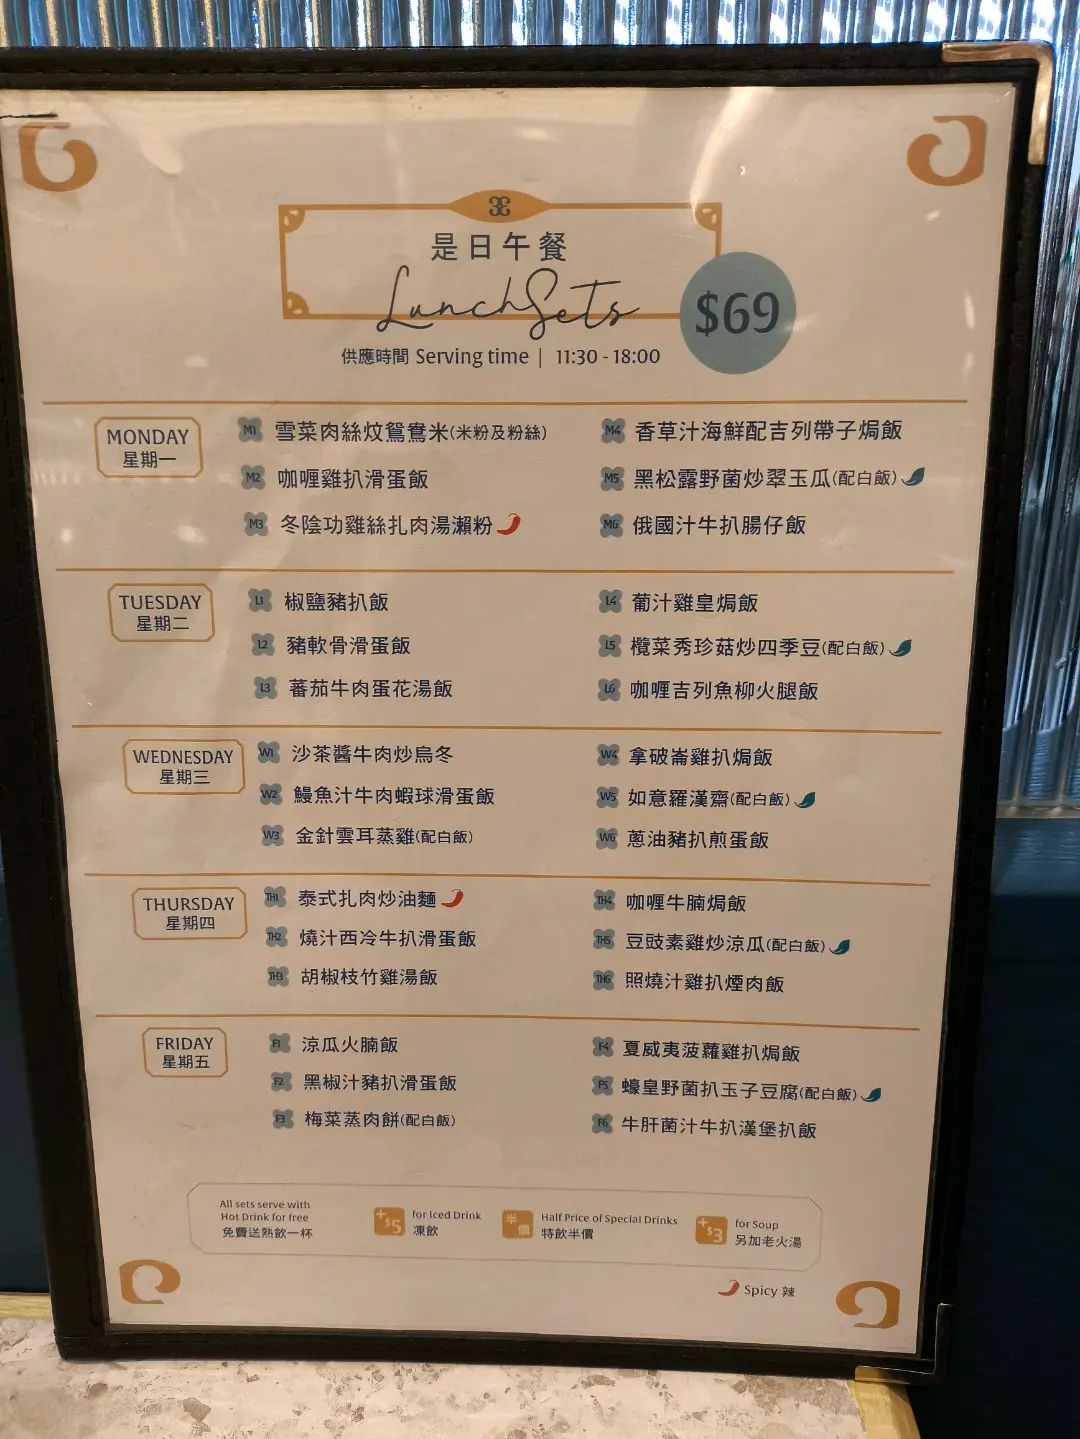 是日午餐
Lunch Sets
$69
供應時間 Serving time | 11:30 - 18:00
MONDAY
星期一
M1 雪菜肉絲炆鴛鴦米(米粉及粉絲)
M2 咖喱雞扒滑蛋飯
M3 冬陰功雞絲扎肉湯瀨粉
M4 香草汁海鮮配吉列帶子焗飯
M5 黑松露野菌炒翠玉瓜(配白飯)
M6 俄國汁牛扒腸仔飯
TUESDAY
星期二
L1 椒鹽豬扒飯
L2 豬軟骨滑蛋飯
L3 蕃茄牛肉蛋花湯飯
L4 葡汁雞皇焗飯
L5 欖菜秀珍菇炒四季豆(配白飯)
L6 咖喱吉列魚柳火腿飯
WEDNESDAY
星期三
W1 沙茶醬牛肉炒烏冬
W2 鰻魚汁牛肉蝦球滑蛋飯
W3 金針雲耳蒸雞(配白飯)
W4 拿破崙雞扒焗飯
W5 如意羅漢齋(配白飯)
W6 蔥油豬扒煎蛋飯
THURSDAY
星期四
TH1 泰式扎肉炒油麵
TH2 燒汁西冷牛扒滑蛋飯
TH3 胡椒枝竹雞湯飯
TH4 咖喱牛腩焗飯
TH5 豆豉素雞炒涼瓜(配白飯)
TH6 照燒汁雞扒煙肉飯
FRIDAY
星期五
F1 涼瓜火腩飯
F2 黑椒汁豬扒滑蛋飯
F3 梅菜蒸肉餅(配白飯)
F4 夏威夷菠蘿雞扒焗飯
F5 蠔皇野菌扒玉子豆腐(配白飯)
F6 牛肝菌汁牛扒漢堡扒飯
All sets serve with
Hot Drink for free
免費送熱飲一杯
+$5 for Iced Drink
凍飲
半價 Half Price of Special Drinks
特飲半價
+$3 for Soup
另加老火湯
Spicy 辣